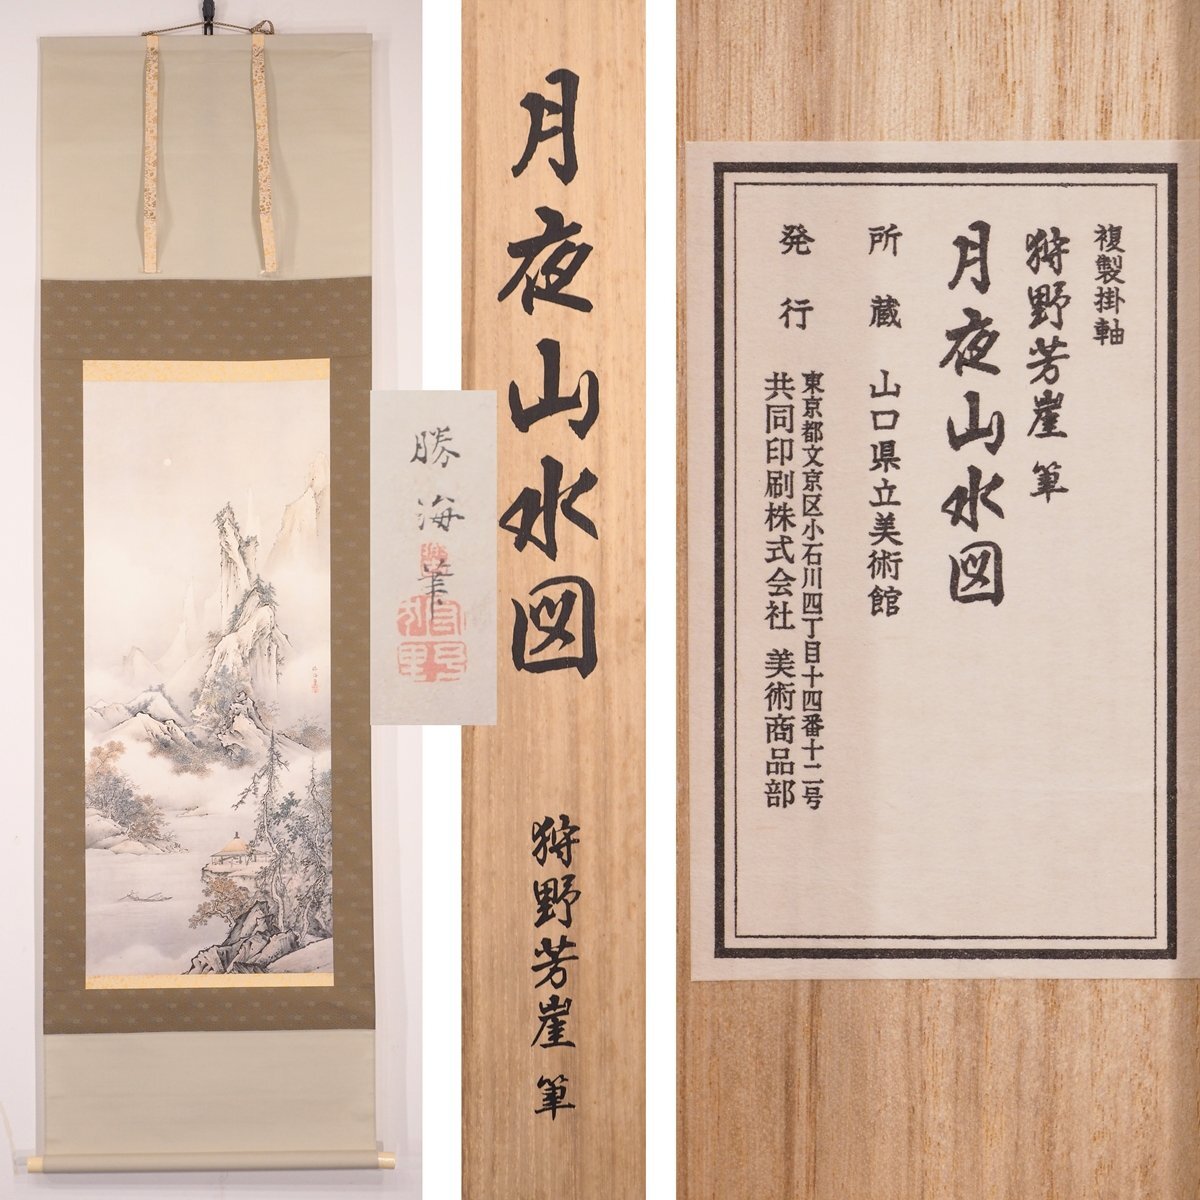 月夜山水図
狩野芳崖 筆
勝海筆
複製掛軸
狩野芳崖 筆
月夜山水図
所蔵 山口県立美術館
発行 東京都文京区小石川四丁目十四番十二号
共同印刷株式会社 美術商品部